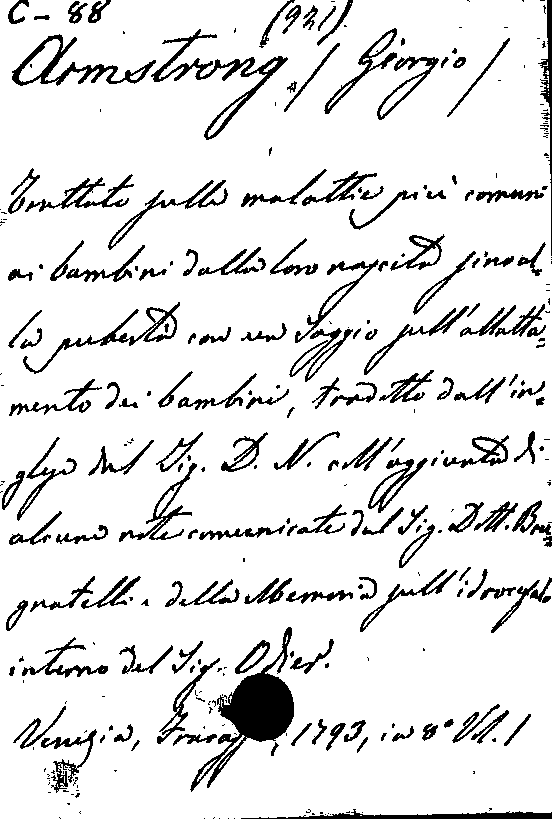 C - 88 (921)
Armstrong / Giorgio /
Trattato sulle malattie più comuni
ai bambini dalla loro nascita sino al-
la pubertà con un Saggio sull'allatta=
mento dei bambini, tradotto dall'in=
glese dal Sig. D. N. coll'aggiunta di
alcune note comunicate dal Sig. Dott. Bru=
gnatelli e della Memoria sull'idrocefalo
interno del Sig. Odier.
Venezia, 1793, in 8° Vol. 1